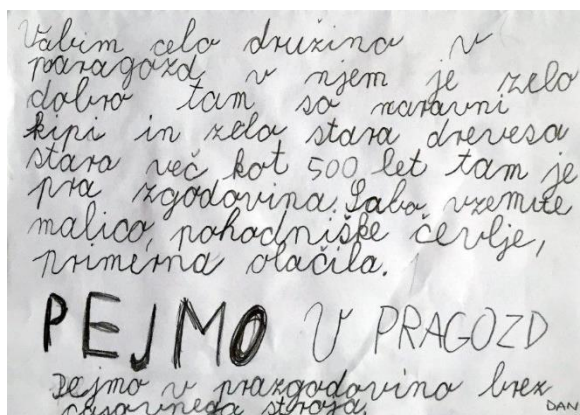 Vabim celo družino v
paragozd, v njem je zelo
dobro tam so naravni
kipi in zelo stara drevesa
stara več kot 500 let tam je
pra zgodovina. Sabo vzemite
malico, pohodniške čevlje,
primerna olačila.
PEJMO V PRAGOZD
Pejmo v prazgodovino brez
časovnega stroja.
DAN